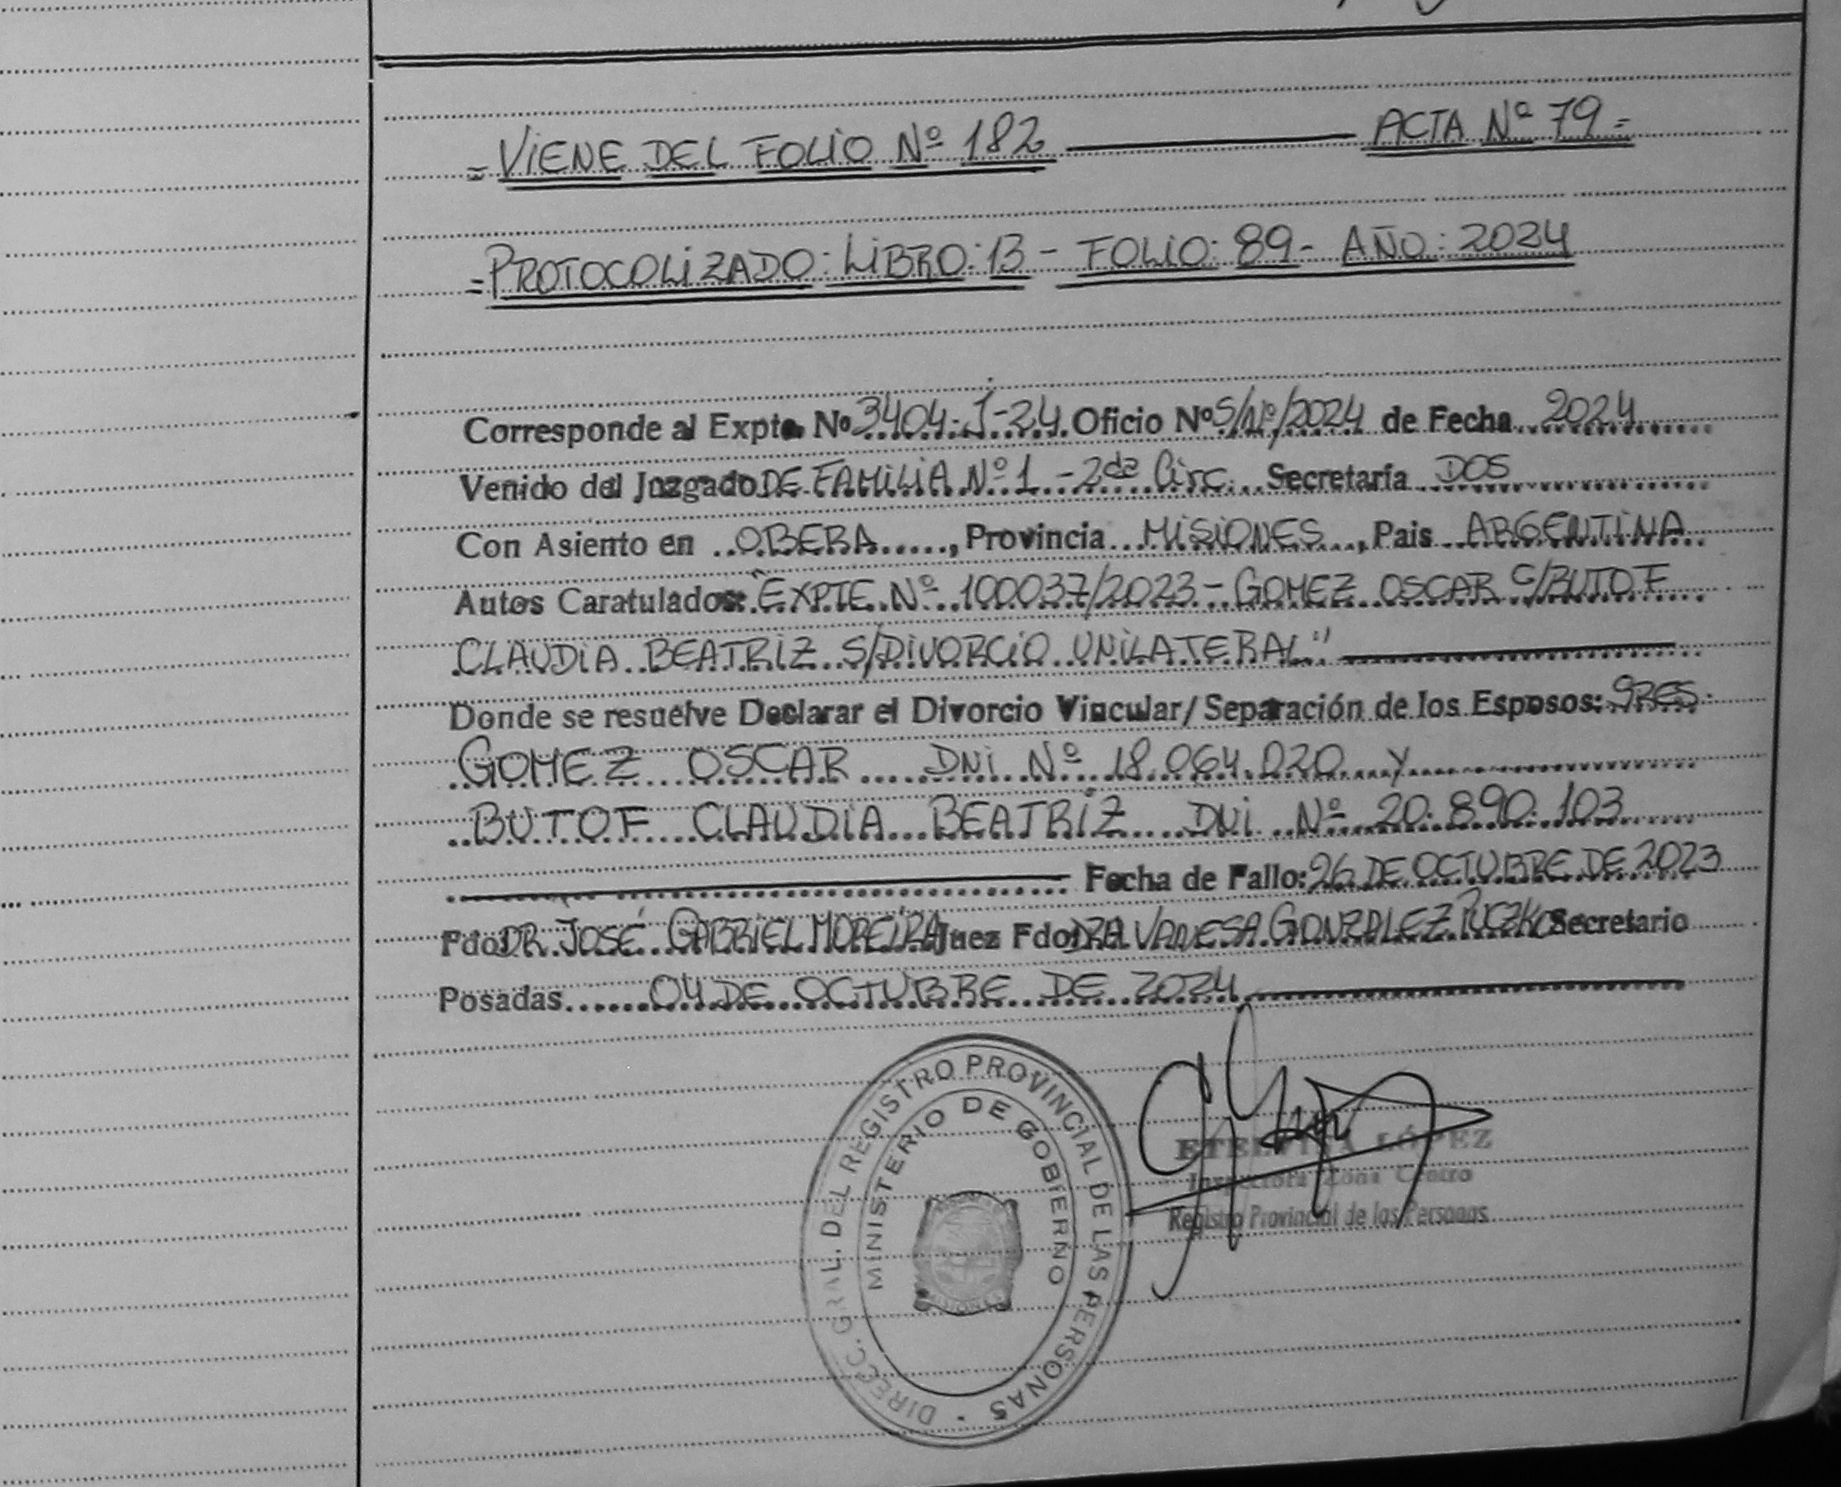 =VIENE DEL FOLIO Nº 182 ACTA Nº 79=
=PROTOCOLIZADO: LIBRO: 13 - FOLIO: 89 - AÑO: 2024
Corresponde al Expte. Nº 3404-J-24 Oficio Nº S/Nº/2024 de Fecha 2024
Venido del Juzgado DE FAMILIA Nº 1 - 2da Circ. Secretaría DOS
Con Asiento en OBERA, Provincia MISIONES, Pais ARGENTINA
Autos Caratulados: "EXPTE Nº 100037/2023 - GOMEZ OSCAR C/BUTOF
CLAUDIA BEATRIZ S/DIVORCIO UNILATERAL"
Donde se resuelve Declarar el Divorcio Vincular/Separación de los Esposos: SRES
GOMEZ OSCAR DNI Nº 18.064.020 y
BUTOF CLAUDIA BEATRIZ DNI Nº 20.890.103
Fecha de Fallo: 26 DE OCTUBRE DE 2023
Fdo: DR. JOSÉ GABRIEL MOREIRA Juez Fdo: DRA VANESA GONZALEZ PUCZKO Secretario
Posadas 04 DE OCTUBRE DE 2024
DIRECC. GRAL. DEL REGISTRO PROVINCIAL DE LAS PERSONAS
MINISTERIO DE GOBIERNO
ETELVINA LÓPEZ
Inspectora Zona Centro
Registro Provincial de las Personas